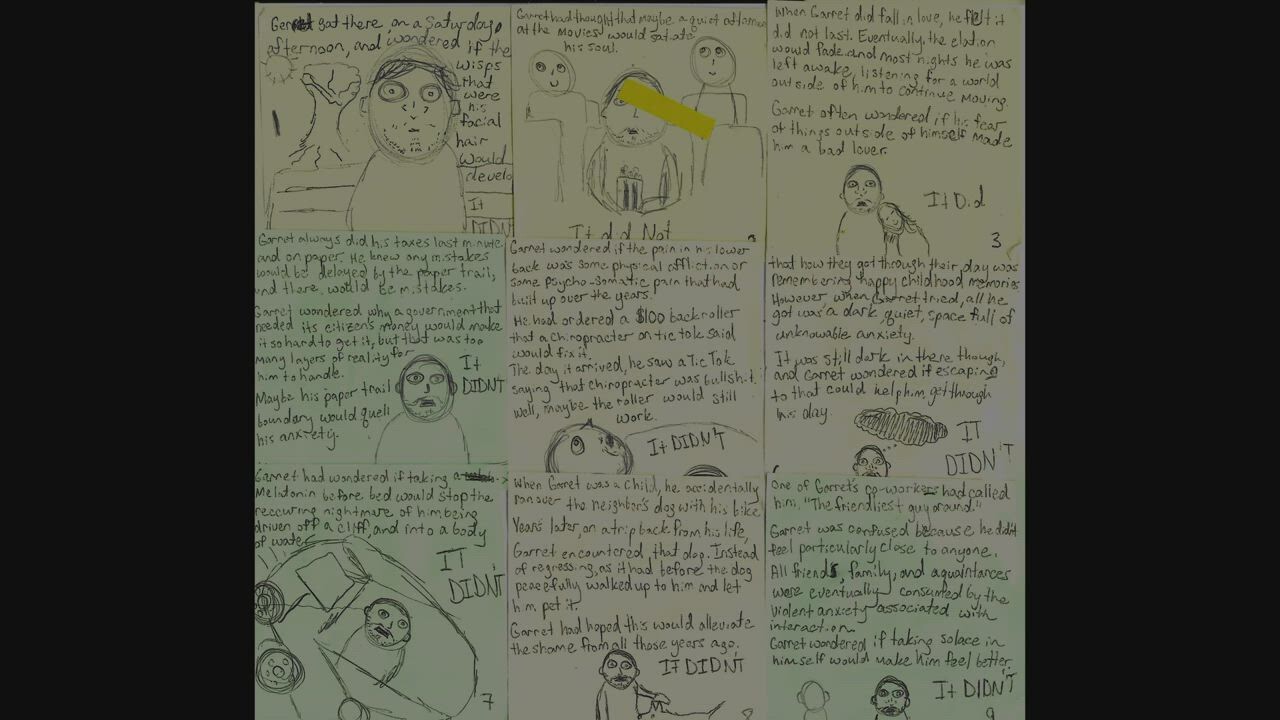 Garret sat there, on a Saturday
afternoon, and wondered if the
wisps
that
were
his
facial
hair
would
develo
It
DIDN'
Garret had thought that maybe a quiet afternoon
at the movies would satiate
his soul.
It did Not
When Garret did fall in love, he felt it
did not last. Eventually, the elation
would fade, and most nights he was
left awake, listening for a world
outside of him to continue moving.
Garret often wondered if his fear
of things outside of himself made
him a bad lover.
It Did
3
Garret always did his taxes last minute
and on paper. He knew any mistakes
would be delayed by the paper trail,
and there, would be mistakes.
Garret wondered why a government that
needed its citizen's money would make
it so hard to get it, but that was too
many layers of reality for
him to handle.
Maybe his paper trail
boundary would quell
his anxiety.
It
DIDN'T
Garret wondered if the pain in his lower
back was some physical affliction or
some psycho-somatic pain that had
built up over the years.
He had ordered a $100 back roller
that a chiropracter on tic tok said
would fix it.
The day it arrived, he saw a Tic Tok
saying that chiropracter was bullshit.
Well, maybe the roller would still
work.
It DIDN'T
that how they got through their day was
remembering happy childhood memories
However, when Garret tried, all he
got was a dark, quiet, space full of
unknowable anxiety.
It was still dark in there though,
and Garret wondered if escaping
to that could help him get through
his day.
IT
DIDN'T
Garret had wondered if taking a
Melatonin before bed would stop the
reccuring nightmare of him being
driven off a cliff, and into a body
of water.
IT
DIDN'T
7
When Garret was a child, he accidentally
ran over the neighbor's dog with his bike
Years later, on a trip back from his life,
Garret encountered that dog. Instead
of regressing, as it had before the dog
peacefully walked up to him and let
him pet it.
Garret had hoped this would alleviate
the shame from all those years ago.
It DIDN'T
8
One of Garret's co-workers had called
him, "The friendliest guy around."
Garret was confused because he didn't
feel particularly close to anyone.
All friends, family, and aquaintances
were eventually consumed by the
violent anxiety associated with
interaction.
Garret wondered if taking solace in
himself would make him feel better.
It DIDN'T
9